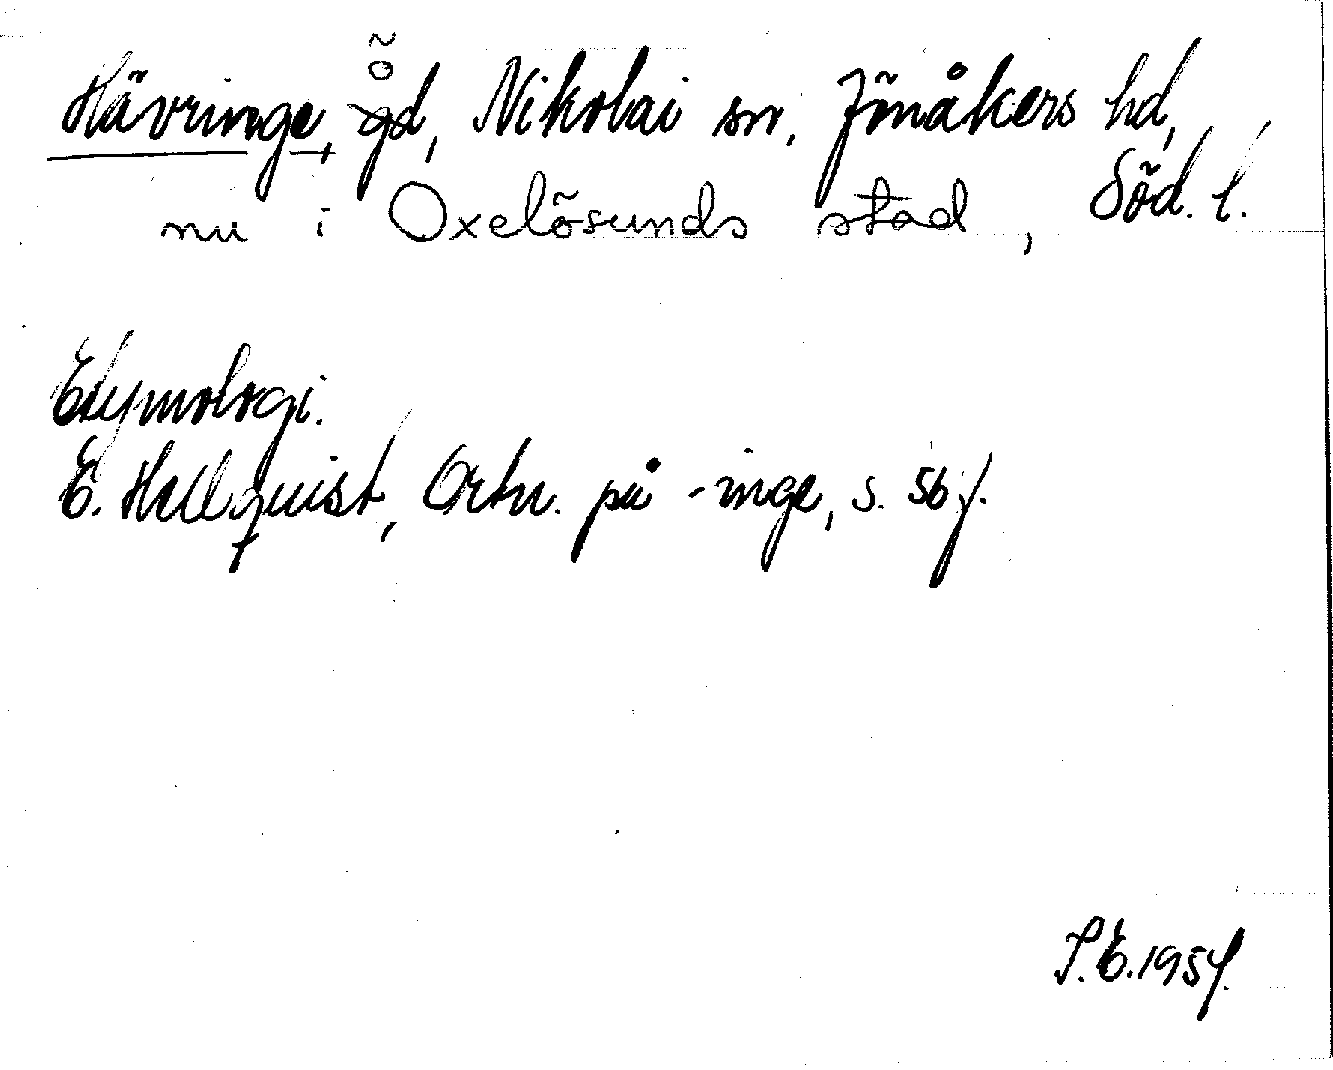 Hävringe, ö gd, Nikolai sn, Jönåkers hd,
nu i Oxelösunds stad, Söd. l.
Etymologi.
E. Hellquist, Ortn. på -inge, s. 56 f.
S.E. 1954.